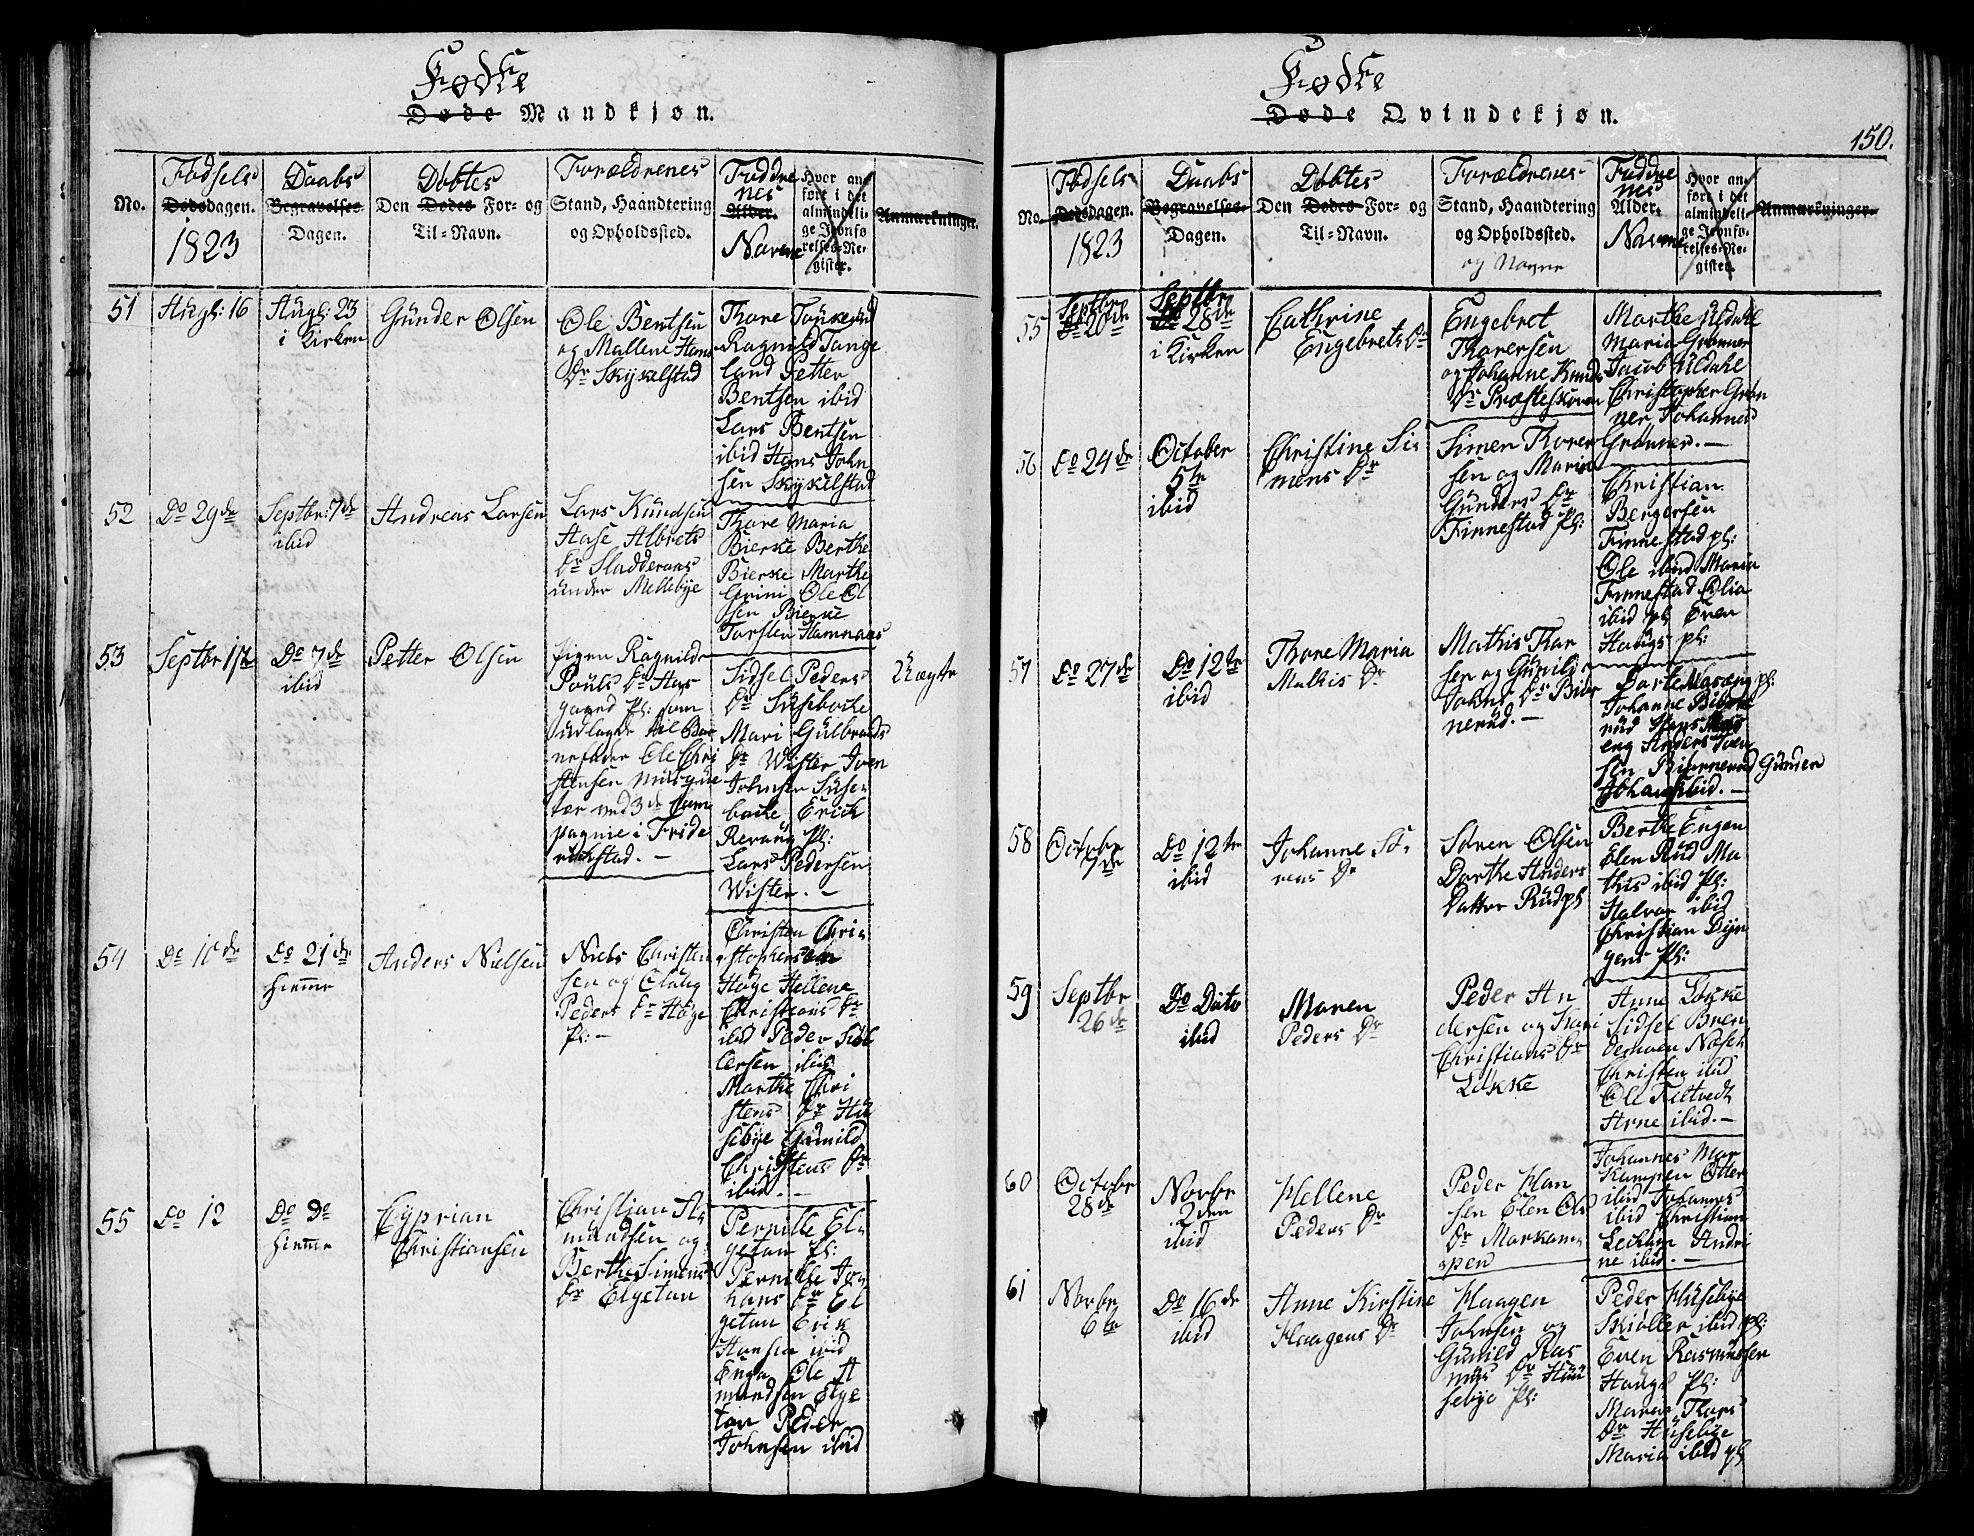 Fødte
Døde Mandkjøn.
No.
Fødsels
Dødsdagen.
1823
Daabs
Begravelses-
Dagen.
Døbtes
Den Dødes For- og
Til-Navn.
Forældrenes
Stand, Haandtering
og Opholdssted.
Faddre
nes
Alder.
Navne
Hvor an-
ført i det
almindeli-
ge Jevnfø-
relses-Re-
gister.
Anmærkninger.
51
Augl: 16
Augl: 23
i Kirken
Gunder Olsen
Ole Bentsen
og Mallene Hans
Dr Skykelstad
Thore
Ragnild Tange
land Petter
Bentsen ibid
Lars Bentsen
ibid Hans John
sen Skykelstad
52
Do 29de
Septbr: 7de
ibid
Andreas Larsen
Lars Knudsen
Aase Albrets
Dr Sladderaas
under Mellebye
Thore Maria
Bierke Berthe
Bierke Marthe
Grini Ole Ol
sen Bierke
Torsten Hamnaas
53
Septbr 1ste
Do 7de
ibid
Petter Olsen
Pigen Ragnild
Pouls Dr Has
gaard Pl: som
udlagde til Bar
nefader Ole Chri
stensen Musque
teer ved 3de Com
pagnie i Fride
richstad. —
Sidsel Peders
Dr Suseback
Mari Gulbrands
Dr Wister Iven
Johnsen Suse
backe Erich
Revaug Pl:
Lars Pedersen
Wister. —
Uægte
54
Do 10de
Do 21de
hiemme
Anders Nielsen
Niels Christen
sen og Olaug
Peders Dr Høge
Pl: —
Christen Chri
stophersen
Høge Hellene
Christians Dr
ibid Peder
lersen ibid
Marthe Chri
stens Dr Hu
sebye Gunild
Christens Dr
ibid. —
55
Do 12
Do Do
hiemme
Cyprian
Christiansen
Christian A
mundsen og
Berthe Simens
Dr Elgetan
Pernille El
getan Pl:
Pernille Jo
hans Dr El
getan Erik
Hansen ibid
Enga Ole A
mundsen Elge
tan Peder
Johnsen ibid
Fødte
Døde Qvindekjøn.
150.
No.
Fødsels
Dødsdagen.
1823
Daabs
Begravelses-
Dagen.
Døbtes
Den Dødes For- og
Til-Navn.
Forældrenes
Stand, Haandtering
og Opholdssted.
og Navne
Faddre
nes
Alder.
Navne
Hvor an-
ført i det
almindeli-
ge Jevnfø-
relses-Re-
gister.
Anmærkninger.
55
Septbr
20de
Septbr
28de
i Kirken
Cathrine
Engebrets Dr
Engebret
Thoresen
og Johanne Knuds
Dr Præsteskoven
Marthe Uldahl
Maria Grønner
Jacob Uldahl
Christopher Grøn
ner Johannes
Grønner. —
56
Do 24de
October
5te
ibid
Christine Si
mens Dr
Simen Thorer
sen og Maria
Gunders Dr
Finnestad Pl:
Christian
Bergersen
Finnestad pl:
Ole ibid Maria
Finnestad Olia
ibid pl Even
Haugs pl:
57
Do 27de
Do 12te
ibid
Thore Maria
Mathis Dr
Mathis Thor
sen og Gunild
Johns Dr Biør
nerud. —
Dorte Moseng pl:
Johanne Biør
rud Hans Mos
eng Anders Iver
sen Biørnerud Gunder
Johans ibid. —
58
Octobr
7de
Do 12te
ibid
Johanne Sø
rens Dr
Søren Olsen
Dorthe Anders
Datter Rud pl
Berthe Engen
Elen Rud Ma
this ibid Pl:
Halvor ibid
Christian Dyn
gens Pl:
59
Septbr
26de
Do Dato
ibid
Maren
Peders Dr
Peder An
dersen og Kari
Christians Dr
Løkke
Anne Løkke
Sidsel Bren
demoen Næss
Christen ibid
Ole Tiltvedt
Arne ibid. —
60
Octobr
28de
Novbr
2den
ibid
Hellene
Peders Dr
Peder Han
sen Elen Ols
Dr Markam
pen
Johannes Mar
kampen Otter
ibid Johannes
ibid Christian
Andri
ne ibid. —
61
Novbr
6te
Do 16de
ibid
Anne Kirstine
Haagens Dr
Haagen
Johnsen og
Gunild Ras
mus Dr Huu
sebye Pl:
Peder Husebye
Skiøller ibid pl:
Even Rasmussen
Haugs Pl:
Maren Thors
Dr Husebye
Maria ibid pl